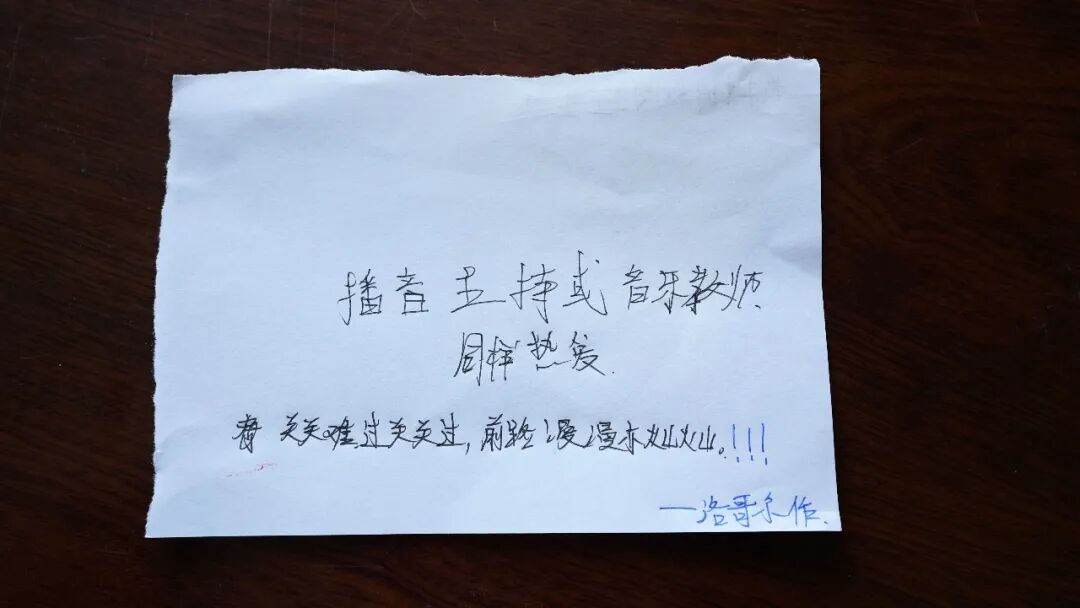 播音主持或音乐教师
同样热爱.
关关难过关关过，前路漫漫亦灿灿。!!!
—洛哥尔作.